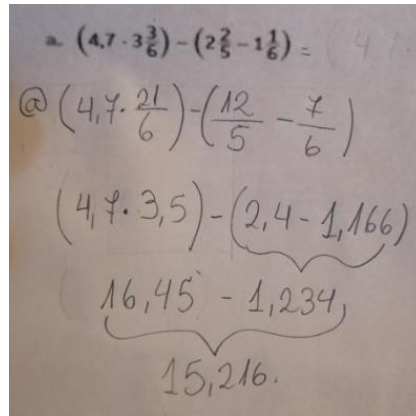 a. (4,7 · 3 3/6) − (2 2/5 − 1 1/6) =
@ (4,7 · 21/6) − (12/5 − 7/6)
(4,7 · 3,5) − (2,4 − 1,166)
16,45 − 1,234
15,216.